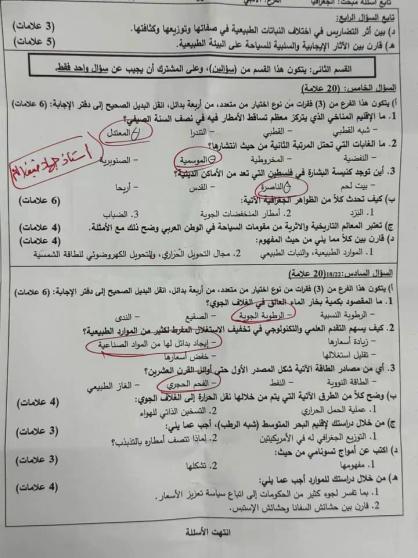 تابع أسئلة مبحث: الجغرافيا
تابع السؤال الرابع:
د) بين أثر التضاريس في اختلاف النباتات الطبيعية في صفاتها وتوزيعها وكثافتها. (3 علامات)
هـ) قارن بين الآثار الإيجابية والسلبية للسياحة على البيئة الطبيعية. (5 علامات)
القسم الثاني: يتكون هذا القسم من (سؤالين)، وعلى المشترك أن يجيب عن سؤال واحد فقط.
السؤال الخامس: (20 علامة)
أ) يتكون هذا الفرع من (3) فقرات من نوع اختيار من متعدد، من أربعة بدائل، انقل البديل الصحيح إلى دفتر الإجابة: (6 علامات)
1. ما الإقليم المناخي الذي يتركز معظم تساقط الأمطار فيه في نصف السنة الصيفي؟
شبه القطبي القطبي التندرا المعتدل
2. ما الغابات التي تحتل المرتبة الثانية من حيث انتشارها؟
النفضية المخروطية الموسمية الصنوبرية
3. أين توجد كنيسة البشارة في فلسطين التي تعد من الأماكن الدينية؟
بيت لحم الناصرة القدس أريحا
ب) كيف تحدث كلاً من الظواهر الجغرافية الآتية: (6 علامات)
1. البَرَد 2. أمطار المنخفضات الجوية 3. الضباب
ج) تعتبر المعالم التاريخية والأثرية من مقومات السياحة في الوطن العربي وضح ذلك مع الأمثلة. (4 علامات)
د) قارن بين كلاً مما يلي من حيث المفهوم: (4 علامات)
1. الموارد الطبيعية، والنبات الطبيعي 2. مجال التحويل الحراري، والتحويل الكهروضوئي للطاقة الشمسية
السؤال السادس: (20 علامة)
أ) يتكون هذا الفرع من (3) فقرات من نوع اختيار من متعدد، من أربعة بدائل، انقل البديل الصحيح إلى دفتر الإجابة: (6 علامات)
1. ما المقصود بكمية بخار الماء العالق في الغلاف الجوي؟
الرطوبة النسبية الرطوبة الجوية الصقيع الندى
2. كيف يسهم التقدم العلمي والتكنولوجي في تخفيف الاستغلال المفرط لكثير من الموارد الطبيعية؟
زيادة أسعارها إيجاد بدائل لها من المواد الصناعية
تقليل استغلالها خفض أسعارها
3. أي من مصادر الطاقة الآتية شكل المصدر الأول حتى أوائل القرن العشرين؟
الطاقة النووية النفط الفحم الحجري الغاز الطبيعي
ب) وضح كلاً من الطرق الآتية التي يتم من خلالها نقل الحرارة إلى الغلاف الجوي: (4 علامات)
1. عملية الحمل الحراري 2. التسخين الذاتي للهواء
ج) من خلال دراستك لإقليم البحر المتوسط (شبه الرطب)، أجب عما يلي: (3 علامات)
1. التوزيع الجغرافي له في الأمريكيتين 2. لماذا تتصف أمطاره بالتذبذب؟
د) اكتب عن أمواج تسونامي من حيث: (3 علامات)
1. مفهومها 2. تشكلها
هـ) من خلال دراستك للموارد الطبيعية أجب عما يلي: (4 علامات)
1. بما تفسر لجوء كثير من الحكومات إلى اتباع سياسة تعزيز الأسعار.
2. قارن بين حشائش السفانا وحشائش الإستبس.
انتهت الأسئلة